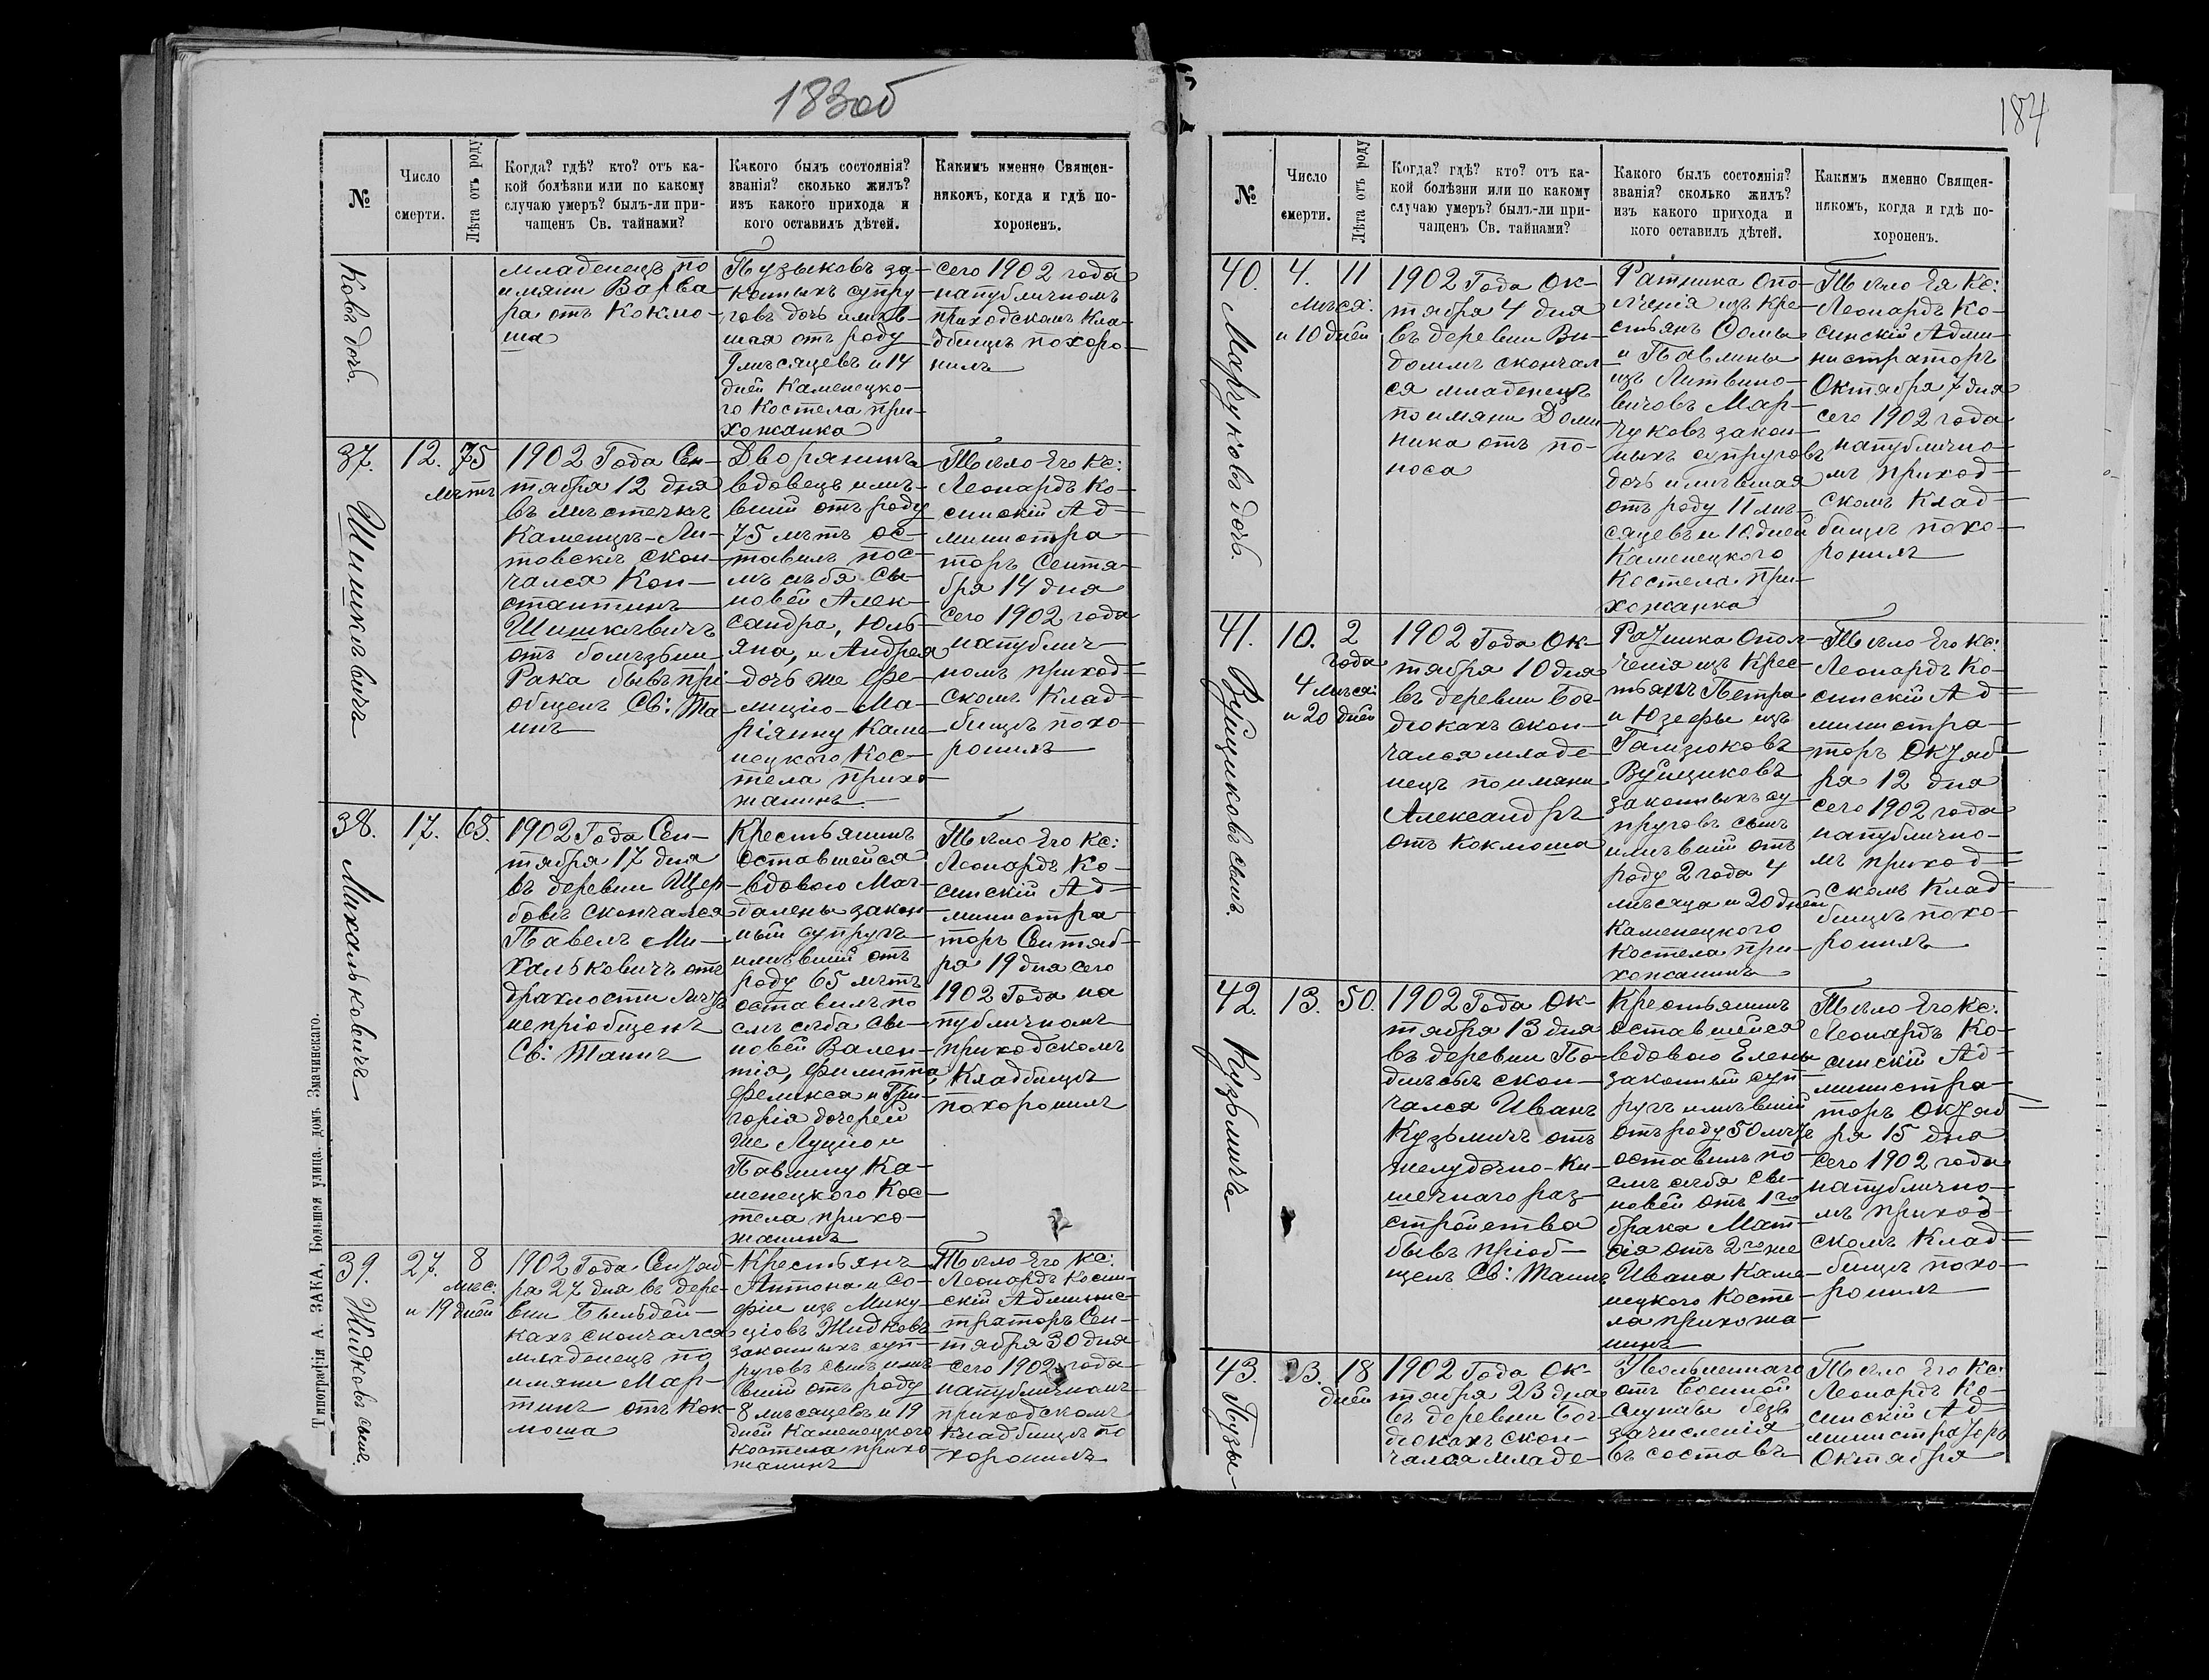 183об
№
Число
смерти.
Лѣта отъ роду
Когда? гдѣ? кто? отъ ка-
кой болѣзни или по какому
случаю умеръ? былъ-ли при-
чащенъ Св. тайнами?
Какого былъ состоянія?
званія? сколько жилъ?
изъ какого прихода и
кого оставилъ дѣтей.
Какимъ именно Священ-
никомъ, когда и гдѣ по-
хороненъ.
ковъ дочь.
младенецъ по
имяни Варва-
ра отъ Коклю-
ша
Пузыковъ за-
конныхъ супру-
говъ дочь имѣв-
шая отъ роду
9 мѣсяцевъ и 14
дней Каменецко-
го Костела при-
хожанка
сего 1902 года
на публичномъ
приходскомъ кла-
дбищѣ похоро-
нилъ
37. Шишкѣвичъ
12.
75
лѣтъ
1902 Года Сен-
тября 12 дня
въ мѣстечкѣ
Каменцѣ-Ли-
товскѣ скон-
чался Кон-
стантинъ
Шишкѣвичъ
отъ болѣзьни
Рака бывъ прі-
общенъ Св: Та-
инъ
Дворянинъ
вдовецъ имѣ-
вшій отъ роду
75 лѣтъ ос-
тавилъ пос-
лѣ себя сы-
новей Алек-
сандра, Юль-
яна, и Андрея
дочь же Фе-
лицію-Ма-
ріянну Каме-
нецкого Кос-
тела прихо-
жанинъ.
Тѣло Его Кс:
Леонардъ Ко-
синскій Ад-
министра-
торъ Сентя-
бря 14 дня
сего 1902 года
на публич-
номъ приход-
скомъ Клад-
бищѣ похо-
ронилъ
38. Михальковичъ
17.
65.
1902 Года Сен-
тября 17 дня
въ деревни Щер-
бовѣ скончался
Павелъ Ми-
хальковичъ отъ
драхлости лѣтъ
непріобщенъ
Св: Таинъ
Крестьянинъ
Оставшейся
вдовою Маг-
далены закон-
ный супругъ
имѣвшій отъ
роду 65 лѣтъ
оставилъ по
слѣ себя сы-
новей Вален-
тія, Филиппа,
Феликса и Гри-
горія дочерей
же Луцію и
Павлину Ка-
менецкого Кос-
тела прихо-
жанинъ
Тѣло Его Кс:
Леонардъ Ко-
синскій Ад-
министра-
торъ Сентяб-
ря 19 дня сего
1902 Года на
публичномъ
приходскомъ
Кладбищѣ
похоронилъ
39. Жидковъ сынъ.
27.
8
мѣс:
и 19 дней
1902 Года Сентяб-
ря 27 дня въ дере-
вни Быльдей-
кахъ скончался
младенецъ по
имяни Мар-
тинъ отъ Кок-
люша
Крестьянъ
Антона и Со-
фіи изъ Мику-
ціовъ Жидковъ
законныхъ суп-
руговъ сынъ имѣ-
вшій отъ роду
8 мѣсяцевъ и 19
дней Каменецкого
Костела прихо-
жанинъ
Тѣло Его Кс:
Леонардъ Косин-
скій Админис-
траторъ Сен-
тября 30 дня
сего 1902 года
на публичномъ
приходскомъ
кладбищѣ по
хоронилъ
Типографія А. ЗАКА, Большая улица. домъ Змачинскаго.
184
№
Число
смерти.
Лѣта отъ роду
Когда? гдѣ? кто? отъ ка-
кой болѣзни или по какому
случаю умеръ? былъ-ли при-
чащенъ Св. тайнами?
Какого былъ состоянія?
званія? сколько жилъ?
изъ какого прихода и
кого оставилъ дѣтей.
Какимъ именно Священ-
никомъ, когда и гдѣ по-
хороненъ.
40. Марчуковъ дочь.
4.
11
мѣся:
и 10 дней
1902 Года Ок-
тября 4 дня
въ деревни Ви-
домлѣ скончал-
ся младенецъ
по имяни Доми-
ника отъ по-
носа
Ратника Опо-
лченія изъ Кре-
стьянъ Фомы
и Павлины
изъ Литвино-
вичовъ Мар-
чуковъ закон-
ныхъ супруговъ
дочь имѣвшая
отъ роду 11 мѣ-
сяцевъ и 10. дней
Каменецкого
Костела. при-
хожанка
Тѣло Ея Кс:
Леонардъ Ко-
синскій Адми-
нистраторъ
Октября 7 дня
сего 1902 года
на публично-
мъ приход-
скомъ Клад-
бищѣ похо-
ронилъ
41. Вуйциковъ сынъ.
10.
2
года
4 мѣся:
и 20 дней
1902 Года Ок-
тября 10 дня
въ деревни Бог-
дюкахъ скон-
чался младе-
нецъ по имяни
Александръ
отъ Коклюша
Ратника Опол-
ченія изъ Крес-
тьянъ Петра
и Юзефы изъ
Гализюковъ
Вуйциковъ
законныхъ су-
пруговъ сынъ
имѣвшій отъ
роду 2 года 4
мѣсяца и 20 дней
Каменецкого
Костела при-
хожанинъ
Тѣло Его Кс:
Леонардъ Ко-
синскій Ад-
министра-
торъ Октяб-
ря 12 дня
сего 1902 года
на публично-
мъ приход-
скомъ Клад-
бищѣ похо-
ронилъ
42. Кузьмичъ
13.
50.
1902 Года Ок-
тября 13 дня
въ деревни По-
длѣсьѣ скон-
чался Иванъ
Кузьмичъ отъ
желудочно-Ки-
шечнаго раз-
стройства
бывъ пріоб-
щенъ Св: Таинъ
Крестьянинъ
оставшейся
вдовою Елены
законный суп-
ругъ имѣвшій
отъ роду 50 лѣтъ
оставилъ по-
слѣ себя сы-
новей отъ 1го
брака Мат-
вія отъ 2го же
Ивана Каме-
нецкого Косте-
ла прихожа-
нинъ
Тѣло Его Кс:
Леонардъ Ко-
синскій Ад-
министра-
торъ Октяб-
ря 15 дня
Сего 1902 года
на публично-
мъ приход-
скомъ Клад-
бищѣ похо-
ронилъ
43. Пузы-
23.
18
дней
1902 Года Ок-
тября 23 дня
въ деревни Бог-
дюкахъ скон-
чался младе-
Уволенного
отъ Военной
службы безъ
зачисленія
въ составъ
Тѣло Его Кс:
Леонардъ Ко-
синскій Ад-
министраторъ
Октября